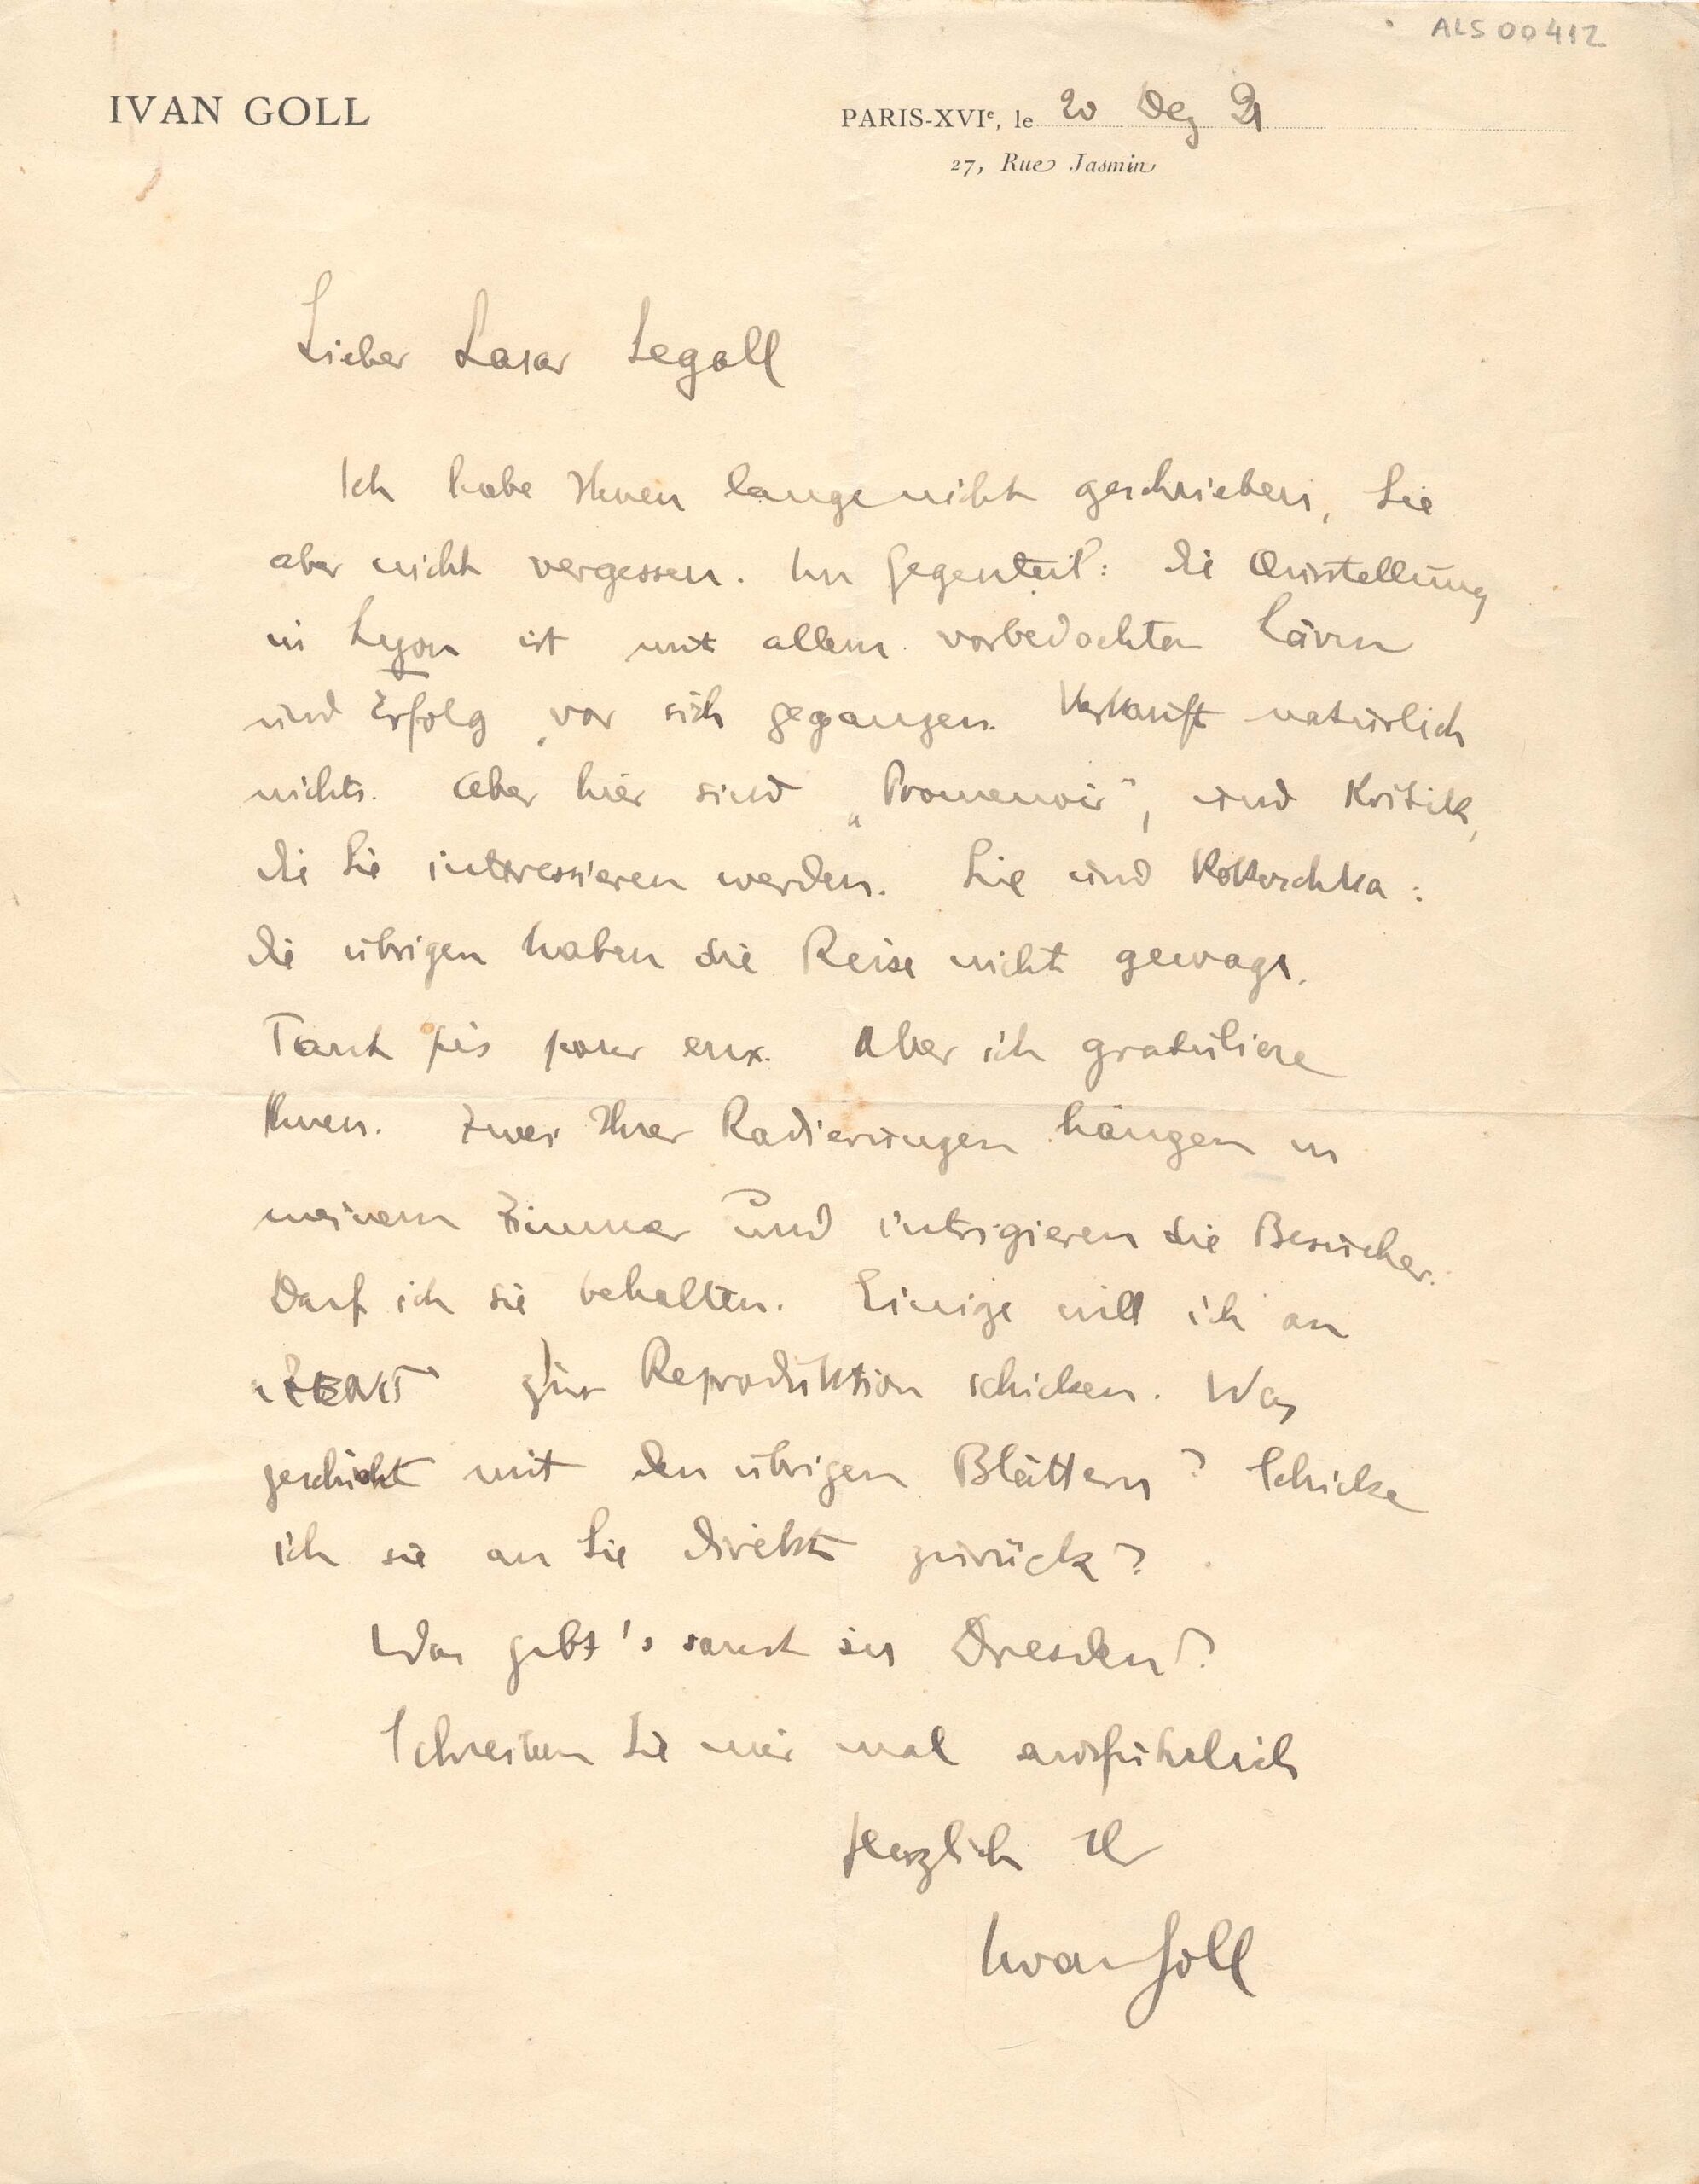 ALS 00412
IVAN GOLL
PARIS-XVIe, le 20 Dez 21
27, Rue Jasmin
Lieber Lasar Segall
Ich habe Ihnen lange nicht geschrieben, Sie
aber nicht vergessen. Im Gegenteil: die Ausstellung
in Lyon ist mit allem vorbedachten Lärm
und Erfolg vor sich gegangen. Verkauft natürlich
nichts. Aber hier sind „Promenoir", und Kritik,
die Sie interessieren werden. Sie und Kokoschka:
die übrigen haben die Reise nicht gewagt.
Tant pis pour eux. Aber ich gratuliere
Ihnen. Zwei Ihrer Radierungen hängen in
meinem Zimmer und intrigieren die Besucher.
Darf ich sie behalten. Einige will ich an
zur Reproduktion schicken. Was
geschieht mit den übrigen Blättern? Schicke
ich sie an Sie direkt zurück?
Was gibt's sonst in Dresden?
Schreiben Sie mir mal ausführlich
Herzlich Ihr
Iwan Goll